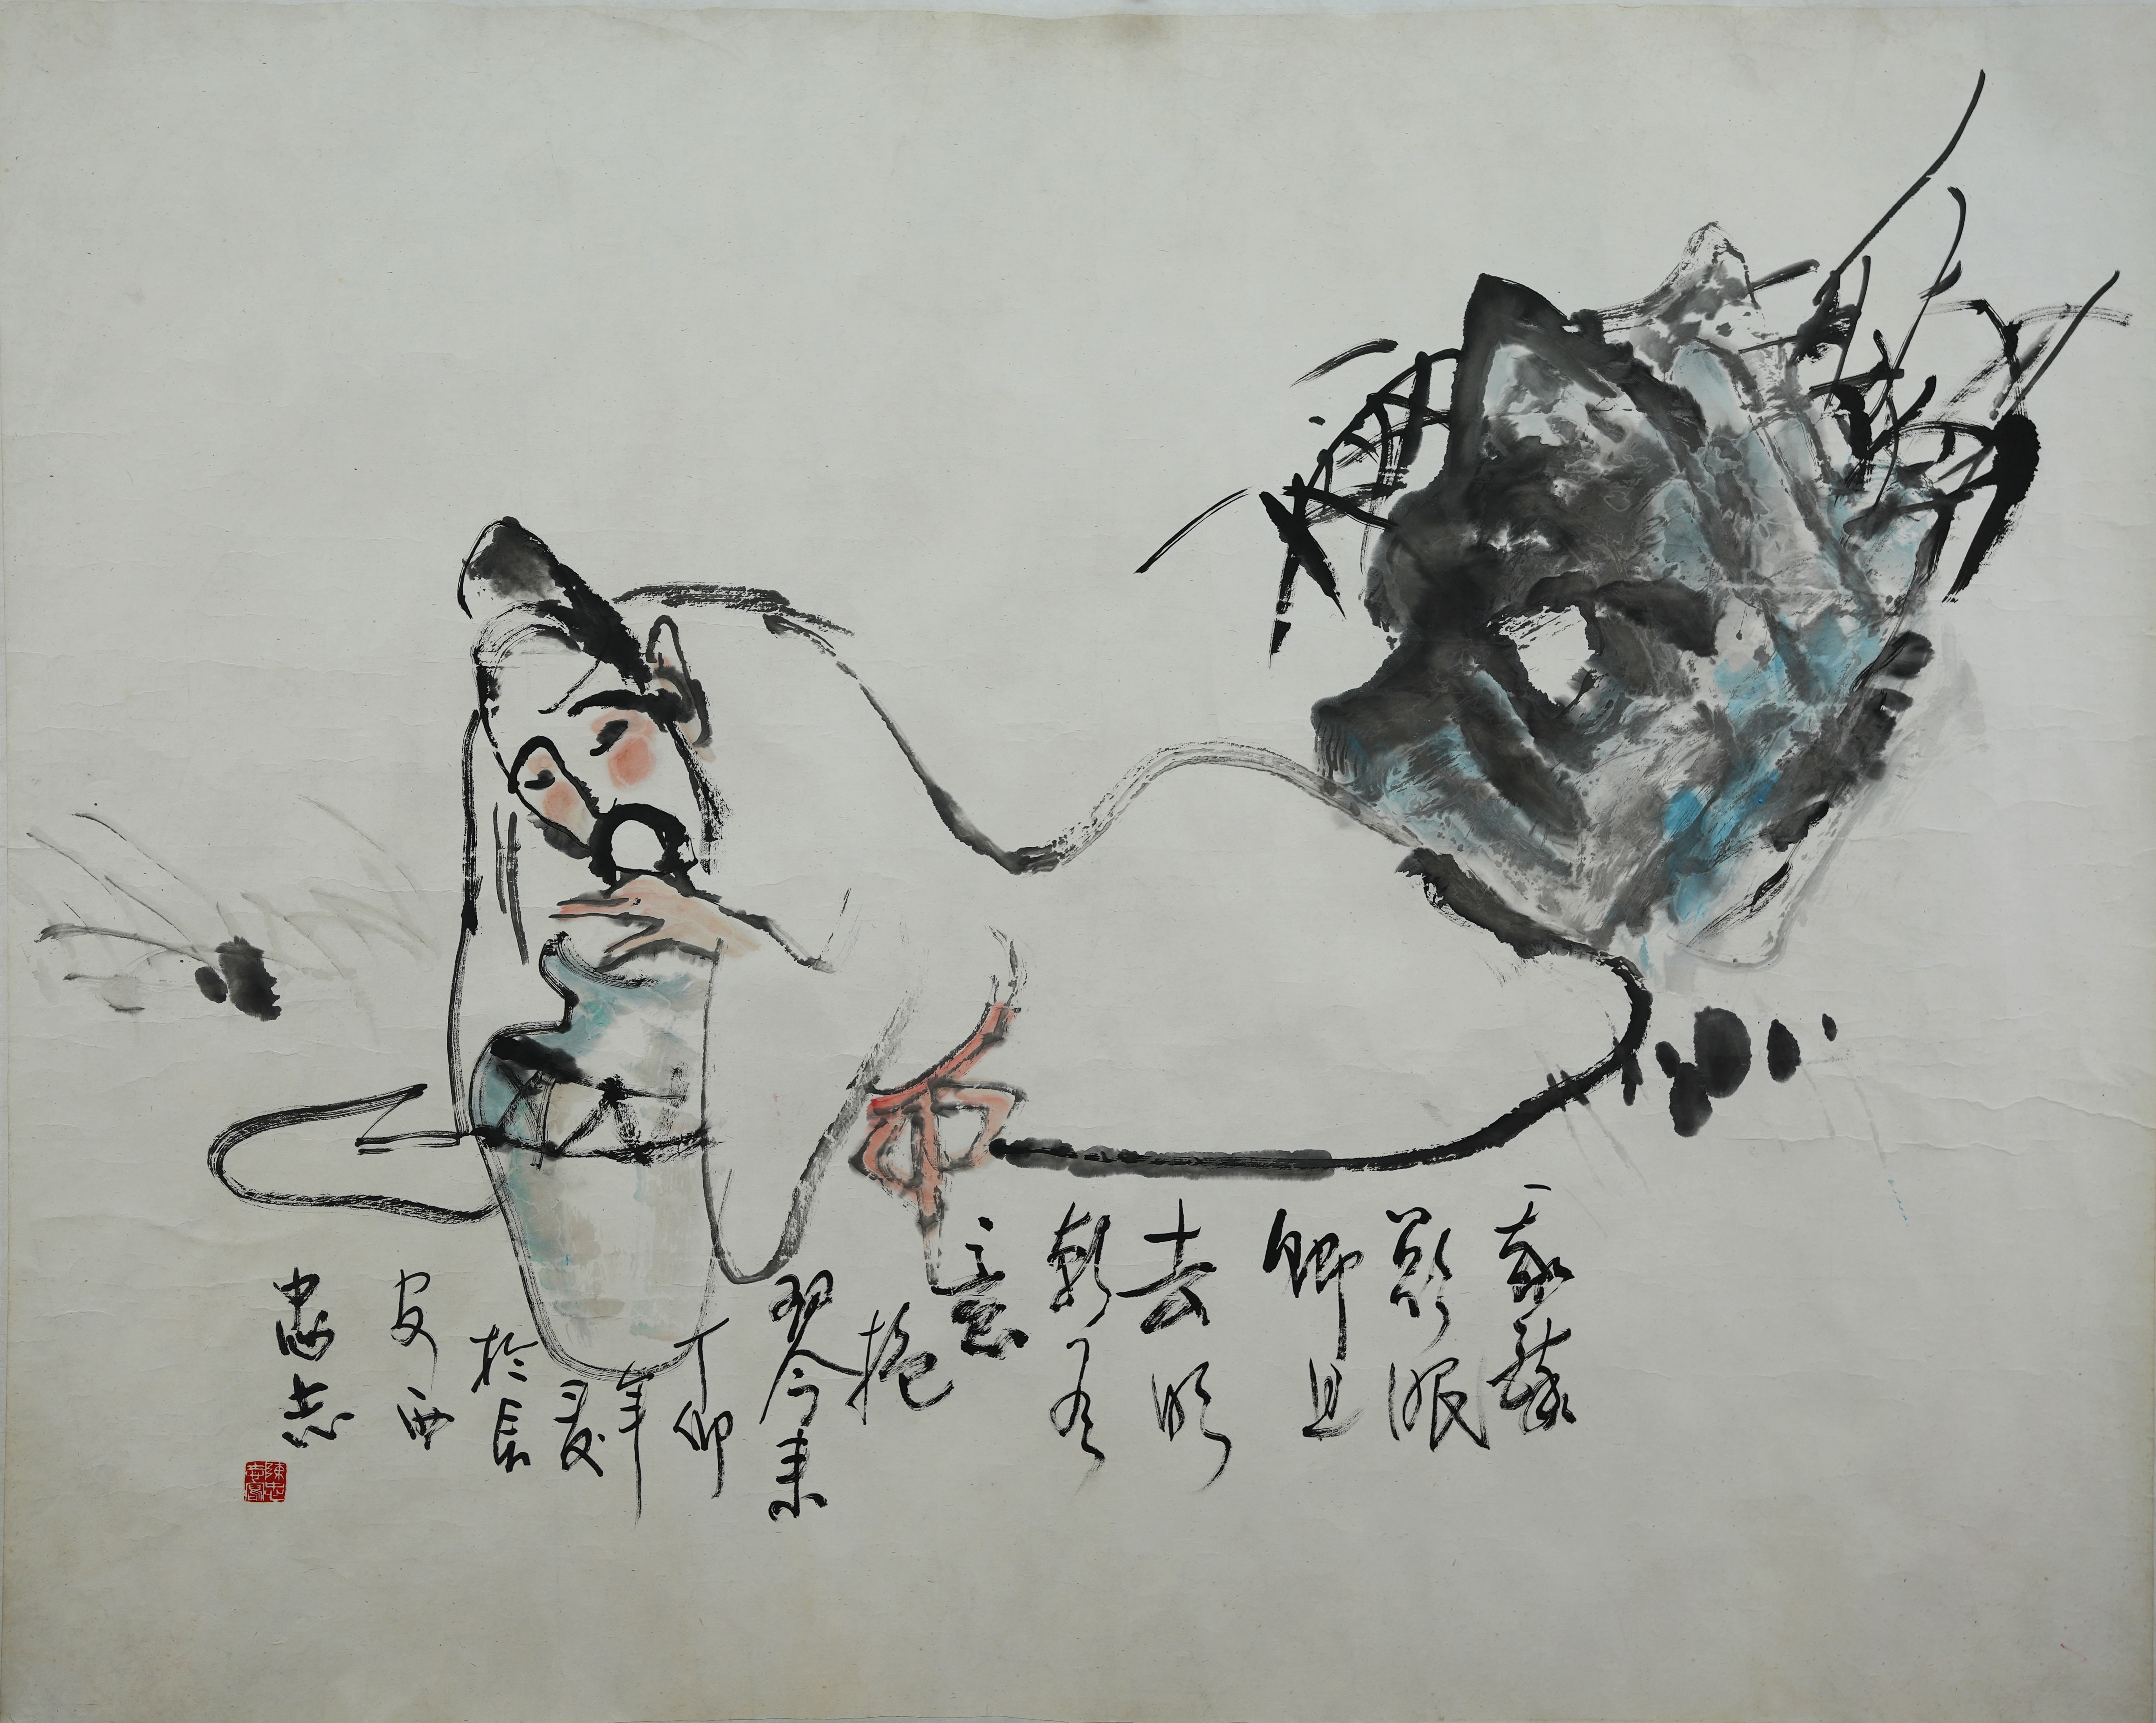 我醉
欲眠
卿且
去明
朝有
意
抱
琴来
丁卯
年
夏
於長
安西
忠志